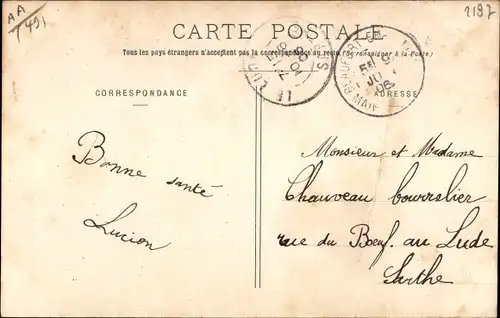 AA
7491
2187
CARTE POSTALE
Tous les pays étrangers n'acceptent pas la correspondance au recto (Se renseigner à la Poste)
CORRESPONDANCE
ADRESSE
Bonne santé
Lucien
Monsieur et Madame
Chauveau bourrelier
rue du Bœuf au Lude
Sarthe